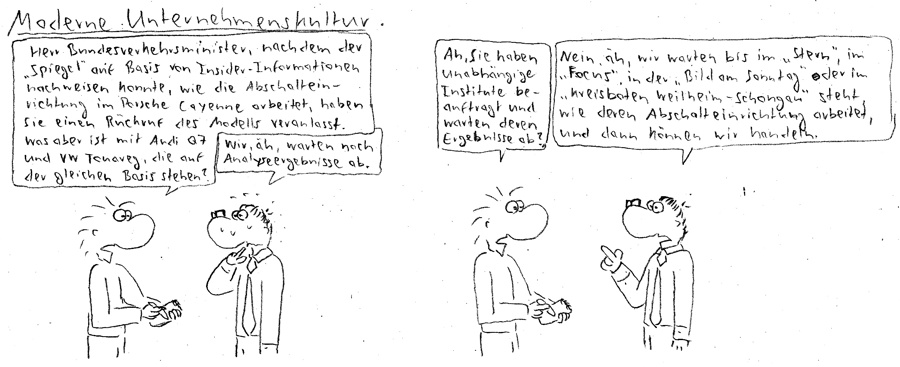 Moderne Unternehmenskultur.
Herr Bundesverkehrsminister, nachdem der
„Spiegel" auf Basis von Insider-Informationen
nachweisen konnte, wie die Abschaltein-
richtung im Porsche Cayenne arbeitet, haben
sie einen Rückruf des Modells veranlasst.
Was aber ist mit Audi Q7
und VW Touareg, die auf
der gleichen Basis stehen?
Wir, äh, warten noch
Analyseergebnisse ab.
Ah, Sie haben
unabhängige
Institute be-
auftragt und
warten deren
Ergebnisse ab?
Nein, äh, wir warten bis im „Stern", im
„Focus", in der „Bild am Sonntag" oder im
„Kreisboten Weilheim-Schongau" steht,
wie deren Abschalteinrichtung arbeitet,
und dann können wir handeln.